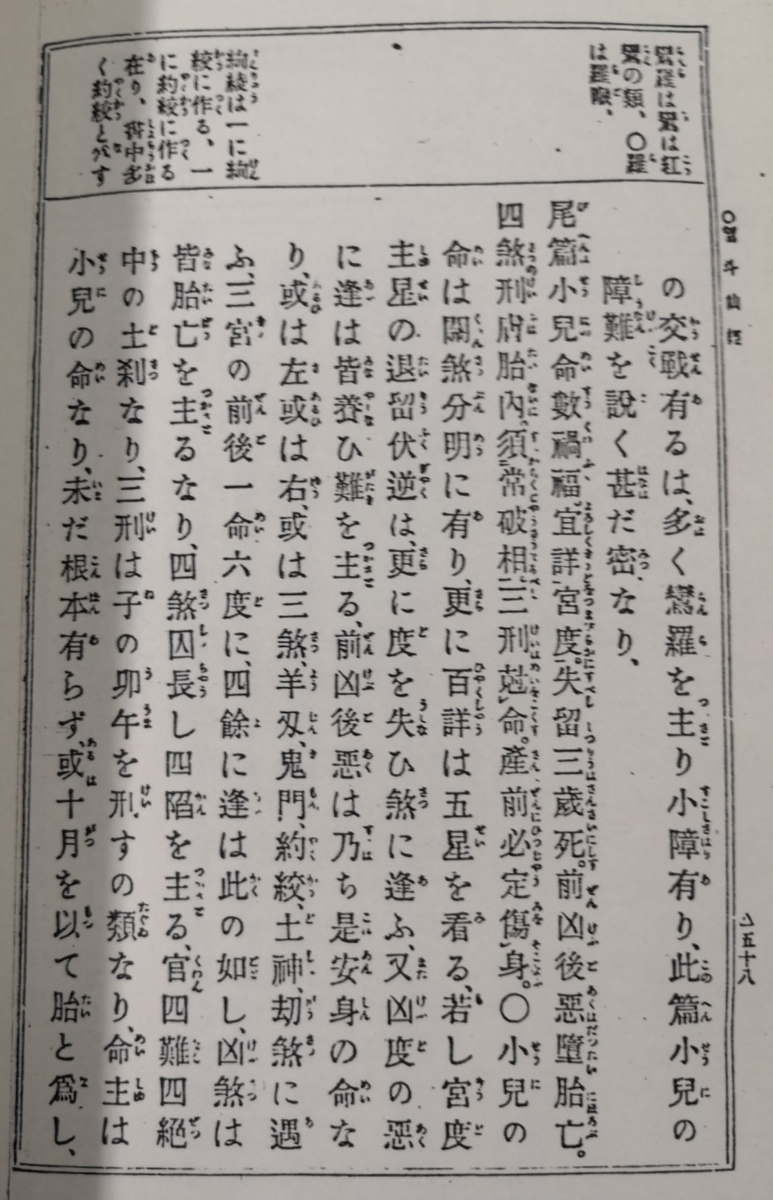 鸞羅は鸞は紅
鸞の類、〇羅
は羅睺、
絞に作る、一
に約絞に作る
在り、書中多
く約絞となす
の交戰有るは、多く鸞羅を主り小障有り、此篇小兒の
障難を說く甚だ密なり、
尾篇小兒命數禍福。宜詳宮度。失留三歲死。前凶後惡墮胎亡。
四煞刑 胎內。須常破相。三刑尅命。產前必定傷身。〇小兒の
命は關煞分明に有り、更に百詳は五星を看る、若し宮度
主星の退留伏逆は、更に度を失ひ煞に逢ふ、又凶度の惡
に逢は皆養ひ難を主る、前凶後惡は乃ち是安身の命な
り、或は左或は右、或は三煞、羊刄、鬼門、約絞、土神、劫煞に遇
ふ、三宮の前後一命六度に、四餘に逢は此の如し、凶煞は
皆胎亡を主るなり、四煞囚長し四陷を主る、官四難四絕
中の土刹なり、三刑は子の卯午を刑すの類なり、命主は
小兒の命なり、未だ根本有らず、或は十月を以て胎と爲し、
五十八